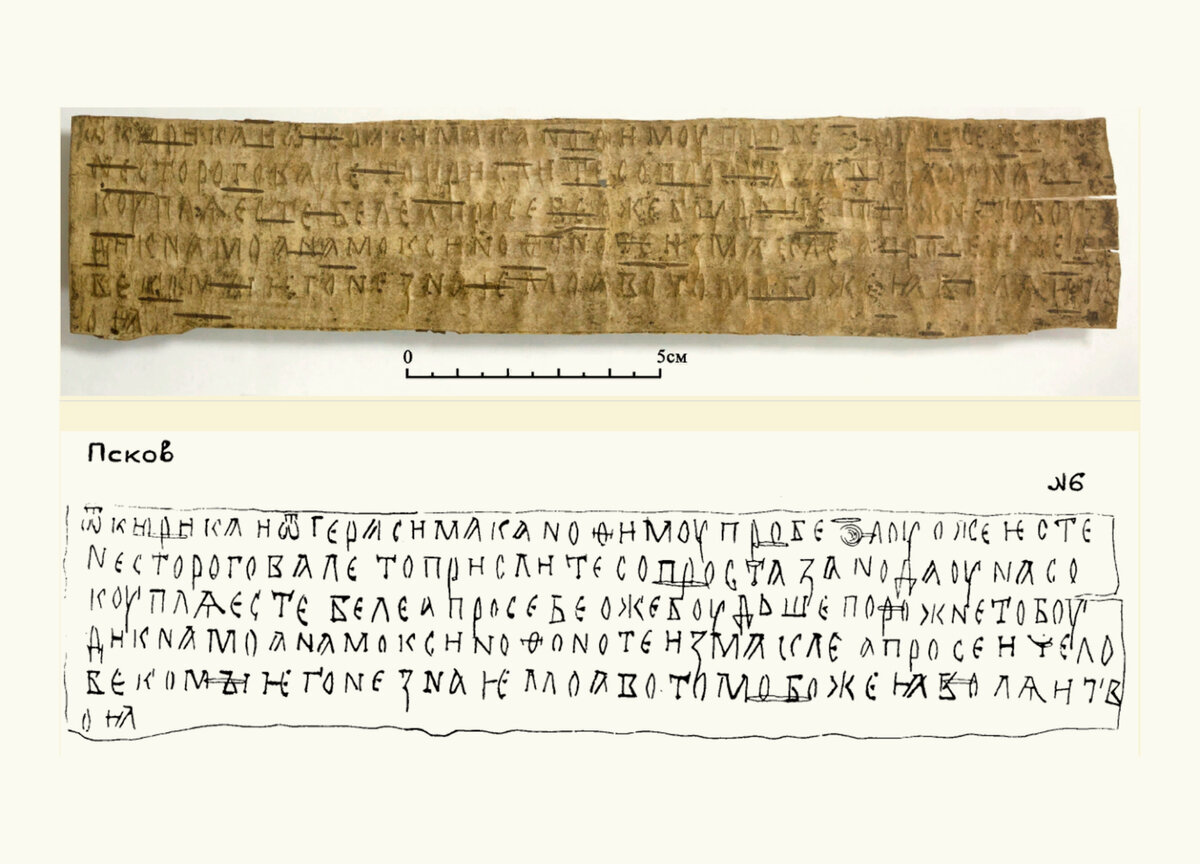 0 5см
Псков
№6
ѾКЮРИКАИѾГЕРАСИМАКАНОФИМОУПРОБЕЛОУОЖЕѤСТЕ
НЕСТОРОГОВАЛЕТОПРИСЛИТЕСОПРОСТАЗАНОДАОУНАСО
КОУПЛѦЕСТЕВЕЛЕАПРОСЕБЕОЖЕБОУДЬШЕПОРОЖНЕТОБОУ
ДИКНАМОАНАМОКСИНОФОНОТЕИЗМАКЛЕАПРОСЕИЧЕЛО
ВЕКОМЪІѤГОНЕЗНАѤМОАВОТОМОБОЖЕꙖВОЛѦИТВ
ОꙖ